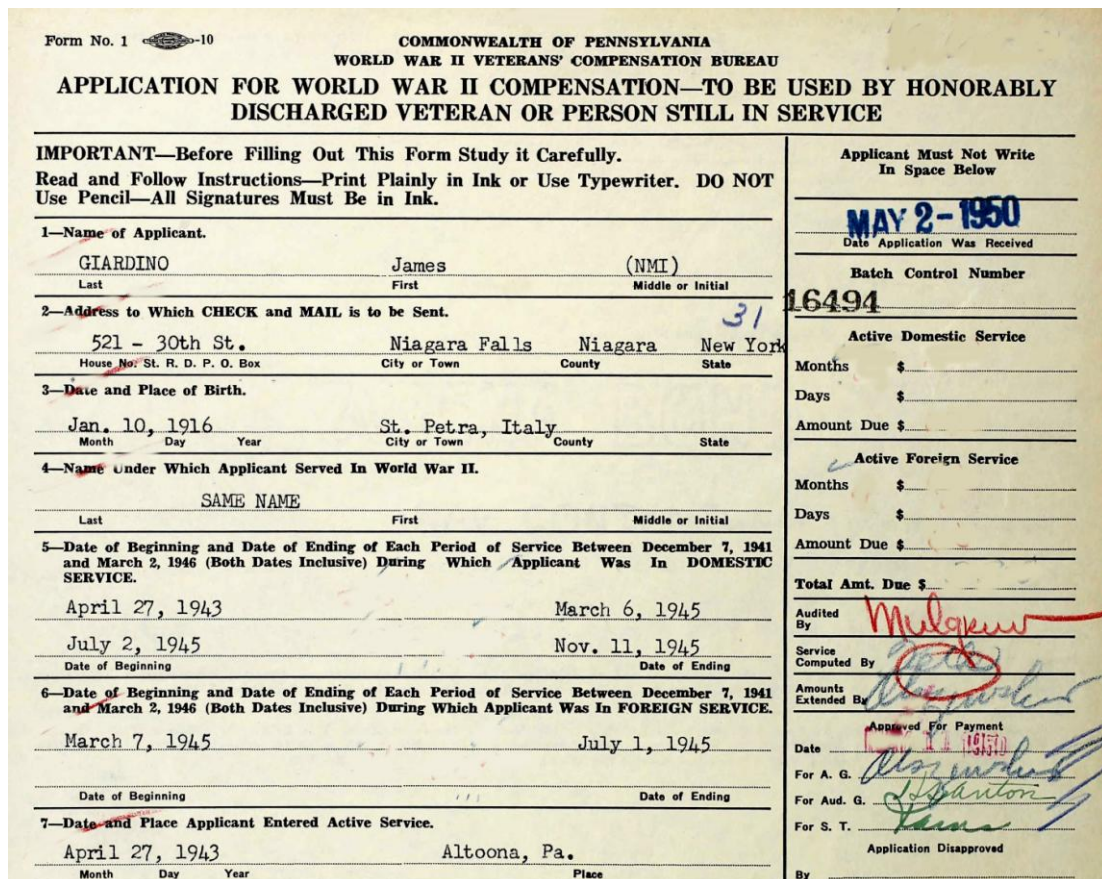 Form No. 1 -10
COMMONWEALTH OF PENNSYLVANIA
WORLD WAR II VETERANS' COMPENSATION BUREAU
APPLICATION FOR WORLD WAR II COMPENSATION—TO BE USED BY HONORABLY
DISCHARGED VETERAN OR PERSON STILL IN SERVICE
IMPORTANT—Before Filling Out This Form Study it Carefully.
Read and Follow Instructions—Print Plainly in Ink or Use Typewriter. DO NOT
Use Pencil—All Signatures Must Be in Ink.
1—Name of Applicant.
GIARDINO James (NMI)
Last First Middle or Initial
2—Address to Which CHECK and MAIL is to be Sent.
31
521 - 30th St. Niagara Falls Niagara New York
House No. St. R. D. P. O. Box City or Town County State
3—Date and Place of Birth.
Jan. 10, 1916 St. Petra, Italy
Month Day Year City or Town County State
4—Name Under Which Applicant Served In World War II.
SAME NAME
Last First Middle or Initial
5—Date of Beginning and Date of Ending of Each Period of Service Between December 7, 1941
and March 2, 1946 (Both Dates Inclusive) During Which Applicant Was In DOMESTIC
SERVICE.
April 27, 1943 March 6, 1945
July 2, 1945 Nov. 11, 1945
Date of Beginning Date of Ending
6—Date of Beginning and Date of Ending of Each Period of Service Between December 7, 1941
and March 2, 1946 (Both Dates Inclusive) During Which Applicant Was In FOREIGN SERVICE.
March 7, 1945 July 1, 1945
Date of Beginning Date of Ending
7—Date and Place Applicant Entered Active Service.
April 27, 1943 Altoona, Pa.
Month Day Year Place
Applicant Must Not Write
In Space Below
MAY 2-1950
Date Application Was Received
Batch Control Number
16494
Active Domestic Service
Months $
Days $
Amount Due $
Active Foreign Service
Months $
Days $
Amount Due $
Total Amt. Due $
Audited
By
Service
Computed By
Amounts
Extended By
Approved For Payment
Date 11 1950
For A. G.
For Aud. G.
For S. T.
Application Disapproved
By